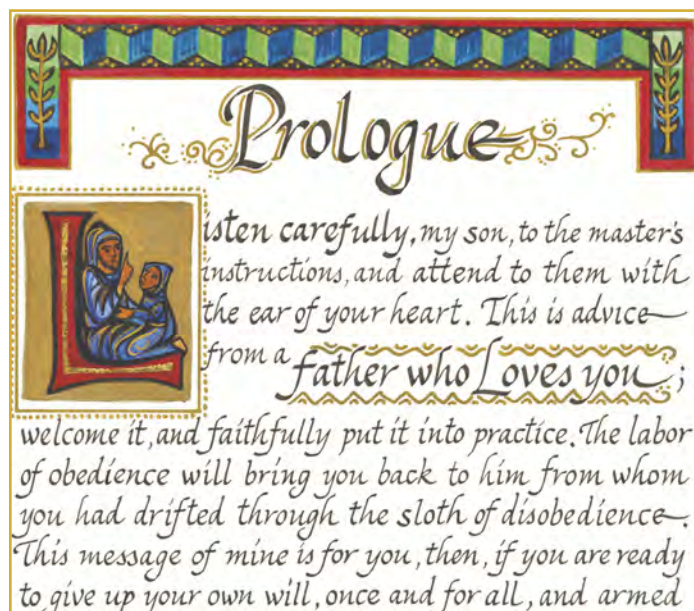 Prologue
Listen carefully, my son, to the master's
instructions, and attend to them with
the ear of your heart. This is advice
from a father who Loves you;
welcome it, and faithfully put it into practice. The labor
of obedience will bring you back to him from whom
you had drifted through the sloth of disobedience.
This message of mine is for you, then, if you are ready
to give up your own will, once and for all, and armed